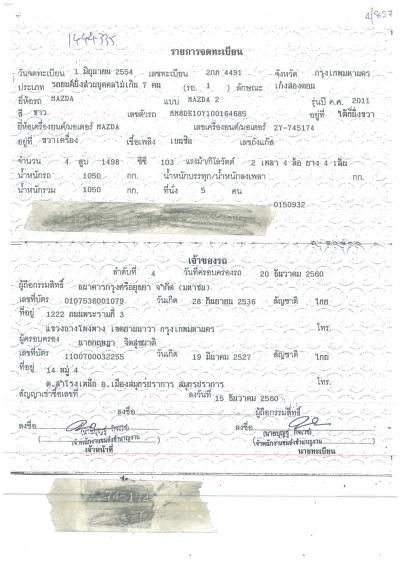 1444335
4/827
รายการจดทะเบียน
วันจดทะเบียน 1 มิถุนายน 2554 เลขทะเบียน 2กภ 4491 จังหวัด กรุงเทพมหานคร
ประเภท รถยนต์นั่งส่วนบุคคลไม่เกิน 7 คน (รย. 1) ลักษณะ เก๋งสองตอน
ยี่ห้อรถ MAZDA แบบ MAZDA 2 รุ่นปี ค.ศ. 2011
สี ขาว เลขตัวรถ MM8DE10Y100164685 อยู่ที่ ใต้ที่นั่งขวา
ยี่ห้อเครื่องยนต์/มอเตอร์ MAZDA เลขเครื่องยนต์/มอเตอร์ ZY-745174
อยู่ที่ ขวาเครื่อง เชื้อเพลิง เบนซิน เลขถังแก๊ส
จำนวน 4 สูบ 1498 ซีซี 103 แรงม้า/กิโลวัตต์ 2 เพลา 4 ล้อ ยาง 4 เส้น
น้ำหนักรถ 1050 กก. น้ำหนักบรรทุก/น้ำหนักลงเพลา กก.
น้ำหนักรวม 1050 กก. ที่นั่ง 5 คน
0150932
เจ้าของรถ
ลำดับที่ 4 วันที่ครอบครองรถ 20 ธันวาคม 2560
ผู้ถือกรรมสิทธิ์ ธนาคารกรุงศรีอยุธยา จำกัด (มหาชน)
เลขที่บัตร 0107536001079 วันเกิด 28 กันยายน 2536 สัญชาติ ไทย
ที่อยู่ 1222 ถนนพระรามที่ 3
แขวงบางโพงพาง เขตยานนาวา กรุงเทพมหานคร โทร.
ผู้ครอบครอง นายกฤษฎา จิตสุขผาติ
เลขที่บัตร 1100700032255 วันเกิด 19 มีนาคม 2527 สัญชาติ ไทย
ที่อยู่ 14 หมู่ 4
ต.สำโรงเหนือ อ.เมืองสมุทรปราการ สมุทรปราการ โทร.
สัญญาเช่าซื้อเลขที่ ลงวันที่ 15 ธันวาคม 2560
ลงชื่อ ผู้ถือกรรมสิทธิ์
ลงชื่อ ลงชื่อ
(เจ้าพนักงานขนส่งชำนาญงาน) (เจ้าพนักงานขนส่งชำนาญงาน)
เจ้าหน้าที่ นายทะเบียน